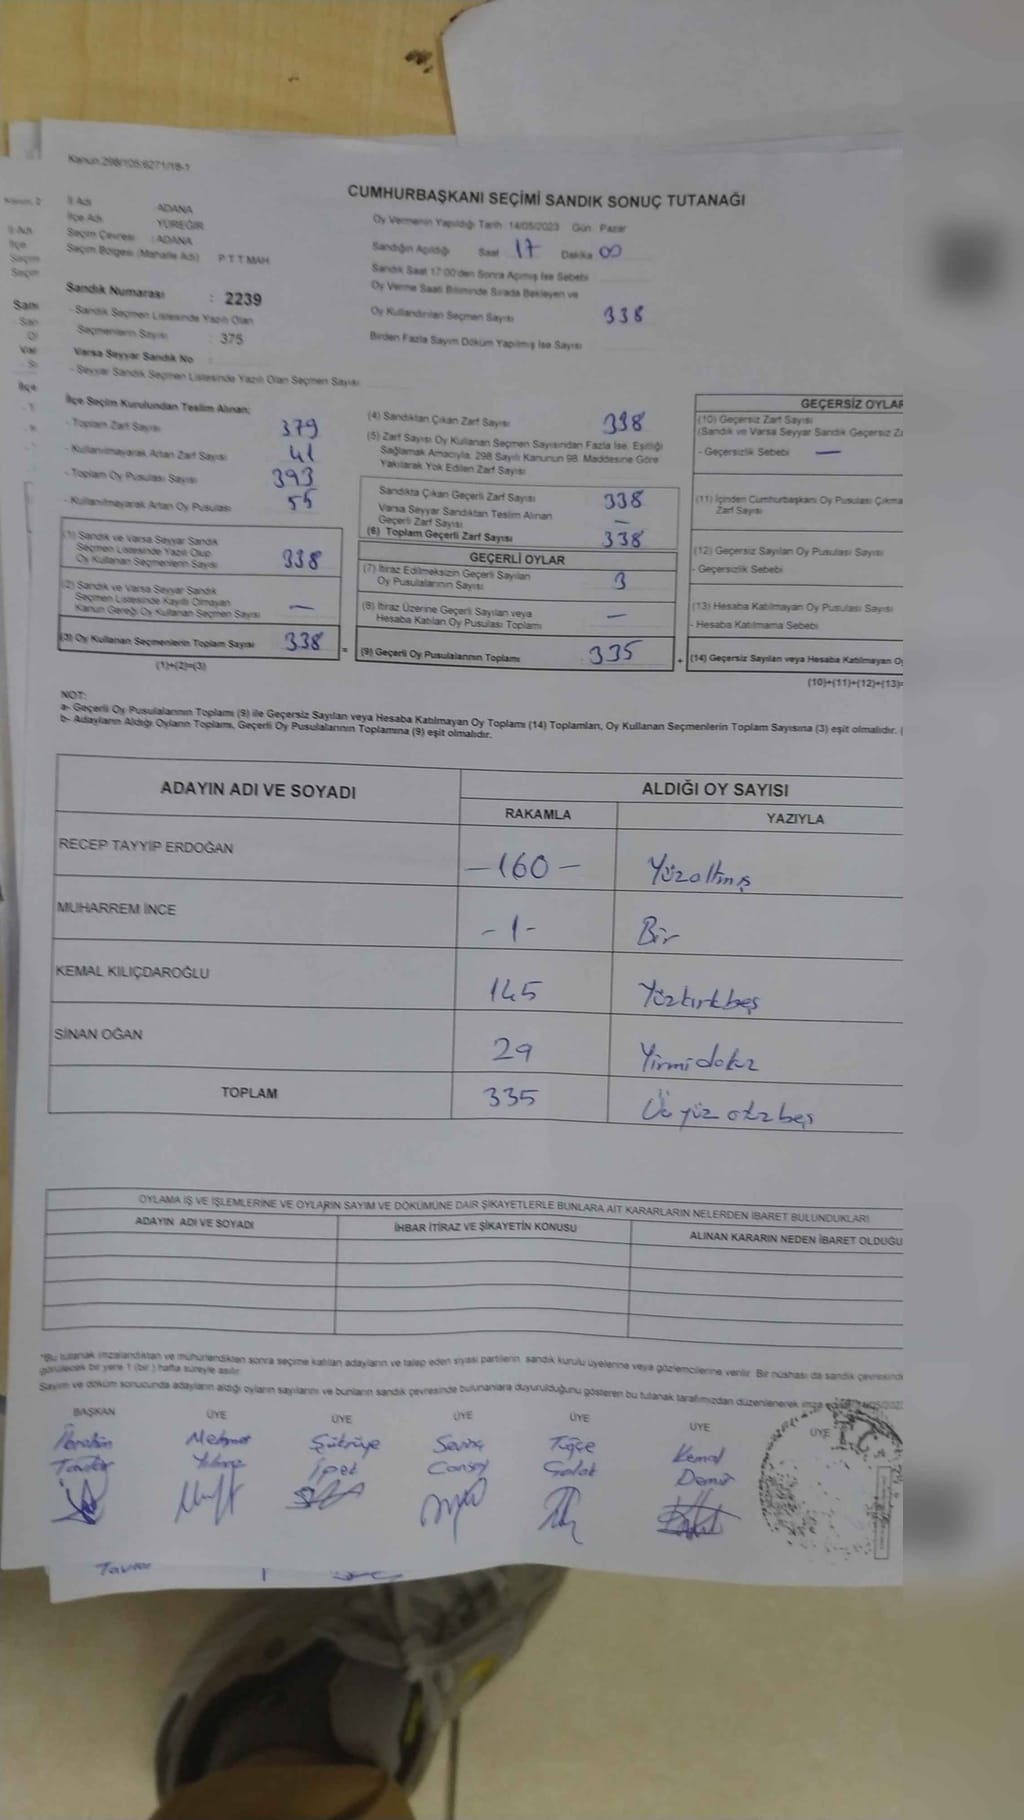 Kanun:298/105;6271/18-1
CUMHURBAŞKANI SEÇİMİ SANDIK SONUÇ TUTANAĞI
İl Adı : ADANA
İlçe Adı : YÜREĞİR
Seçim Çevresi : ADANA
Seçim Bölgesi (Mahalle Adı) : PTT MAH
Sandık Numarası : 2239
- Sandık Seçmen Listesinde Yazılı Olan
Seçmenlerin Sayısı : 375
Varsa Seyyar Sandık No :
- Seyyar Sandık Seçmen Listesinde Yazılı Olan Seçmen Sayısı
Oy Vermenin Yapıldığı Tarih : 14/05/2023 Gün : Pazar
Sandığın Açıldığı Saat 17 Dakika 00
Sandık Saat 17:00'den Sonra Açılmış İse Sebebi
Oy Verme Saati Bitiminde Sırada Bekleyen ve
Oy Kullandırılan Seçmen Sayısı 338
Birden Fazla Sayım Döküm Yapılmış İse Sayısı
İlçe Seçim Kurulundan Teslim Alınan;
- Toplam Zarf Sayısı 379
- Kullanılmayarak Artan Zarf Sayısı 41
- Toplam Oy Pusulası Sayısı 393
- Kullanılmayarak Artan Oy Pusulası 55
(1) Sandık ve Varsa Seyyar Sandık
Seçmen Listesinde Yazılı Olup
Oy Kullanan Seçmenlerin Sayısı 338
(2) Sandık ve Varsa Seyyar Sandık
Seçmen Listesinde Kayıtlı Olmayan
Kanun Gereği Oy Kullanan Seçmen Sayısı —
(3) Oy Kullanan Seçmenlerin Toplam Sayısı 338 =
(1)+(2)=(3)
(4) Sandıktan Çıkan Zarf Sayısı 338
(5) Zarf Sayısı Oy Kullanan Seçmen Sayısından Fazla İse, Eşitliği
Sağlamak Amacıyla; 298 Sayılı Kanunun 98. Maddesine Göre
Yakılarak Yok Edilen Zarf Sayısı
Sandıkta Çıkan Geçerli Zarf Sayısı 338
Varsa Seyyar Sandıktan Teslim Alınan
Geçerli Zarf Sayısı —
(6) Toplam Geçerli Zarf Sayısı 338
GEÇERLİ OYLAR
(7) İtiraz Edilmeksizin Geçerli Sayılan
Oy Pusulalarının Sayısı 3
(8) İtiraz Üzerine Geçerli Sayılan veya
Hesaba Katılan Oy Pusulası Toplamı —
(9) Geçerli Oy Pusulalarının Toplamı 335 +
GEÇERSİZ OYLAR
(10) Geçersiz Zarf Sayısı
(Sandık ve Varsa Seyyar Sandık Geçersiz Za
- Geçersizlik Sebebi —
(11) İçinden Cumhurbaşkanı Oy Pusulası Çıkma
Zarf Sayısı
(12) Geçersiz Sayılan Oy Pusulası Sayısı
- Geçersizlik Sebebi
(13) Hesaba Katılmayan Oy Pusulası Sayısı
- Hesaba Katılmama Sebebi
(14) Geçersiz Sayılan veya Hesaba Katılmayan O
(10)+(11)+(12)+(13)=
NOT:
a- Geçerli Oy Pusulalarının Toplamı (9) ile Geçersiz Sayılan veya Hesaba Katılmayan Oy Toplamı (14) Toplamları, Oy Kullanan Seçmenlerin Toplam Sayısına (3) eşit olmalıdır. (
b- Adayların Aldığı Oyların Toplamı, Geçerli Oy Pusulalarının Toplamına (9) eşit olmalıdır.
ADAYIN ADI VE SOYADI ALDIĞI OY SAYISI
RAKAMLA YAZIYLA
RECEP TAYYİP ERDOĞAN -160- Yüzaltmış
MUHARREM İNCE -1- Bir
KEMAL KILIÇDAROĞLU 145 Yüzkırkbeş
SİNAN OĞAN 29 Yirmidokuz
TOPLAM 335 Üçyüz otuzbeş
OYLAMA İŞ VE İŞLEMLERİNE VE OYLARIN SAYIM VE DÖKÜMÜNE DAİR ŞİKAYETLERLE BUNLARA AİT KARARLARIN NELERDEN İBARET BULUNDUKLARI
ADAYIN ADI VE SOYADI İHBAR İTİRAZ VE ŞİKAYETİN KONUSU ALINAN KARARIN NEDEN İBARET OLDUĞU
*Bu tutanak imzalandıktan ve mühürlendikten sonra seçime katılan adayların ve talep eden siyasi partilerin sandık kurulu üyelerine veya gözlemcilerine verilir. Bir nüshası da sandık çevresinde
görülecek bir yere 1 (bir) hafta süreyle asılır.
Sayım ve döküm sonucunda adayların aldığı oyların sayılarını ve bunların sandık çevresinde bulunanlara duyurulduğunu gösteren bu tutanak tarafımızdan düzenlenerek imza edildi.
BAŞKAN ÜYE ÜYE ÜYE ÜYE ÜYE ÜYE
İbrahim Mehmet Şükriye Sevinç Tuğçe Kemal
İpek Demir